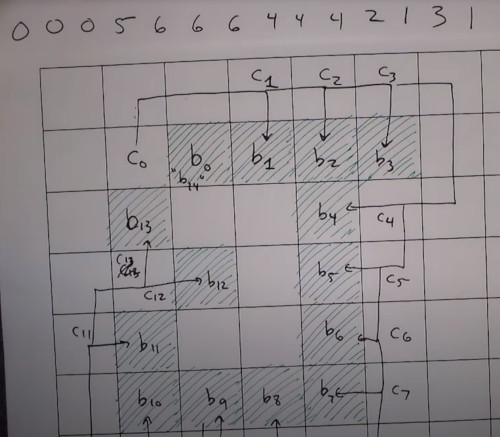 0 0 0 5 6 6 6 4 4 4 2 1 3 1
C₁ C₂ C₃
C₀ b₀ b₁ b₂ b₃
"b₁₄"
b₁₃ b₄ C₄
C₁₃
C₁₂ b₁₂ b₅ C₅
C₁₁ b₁₁ b₆ C₆
b₁₀ b₉ b₈ b₇ C₇